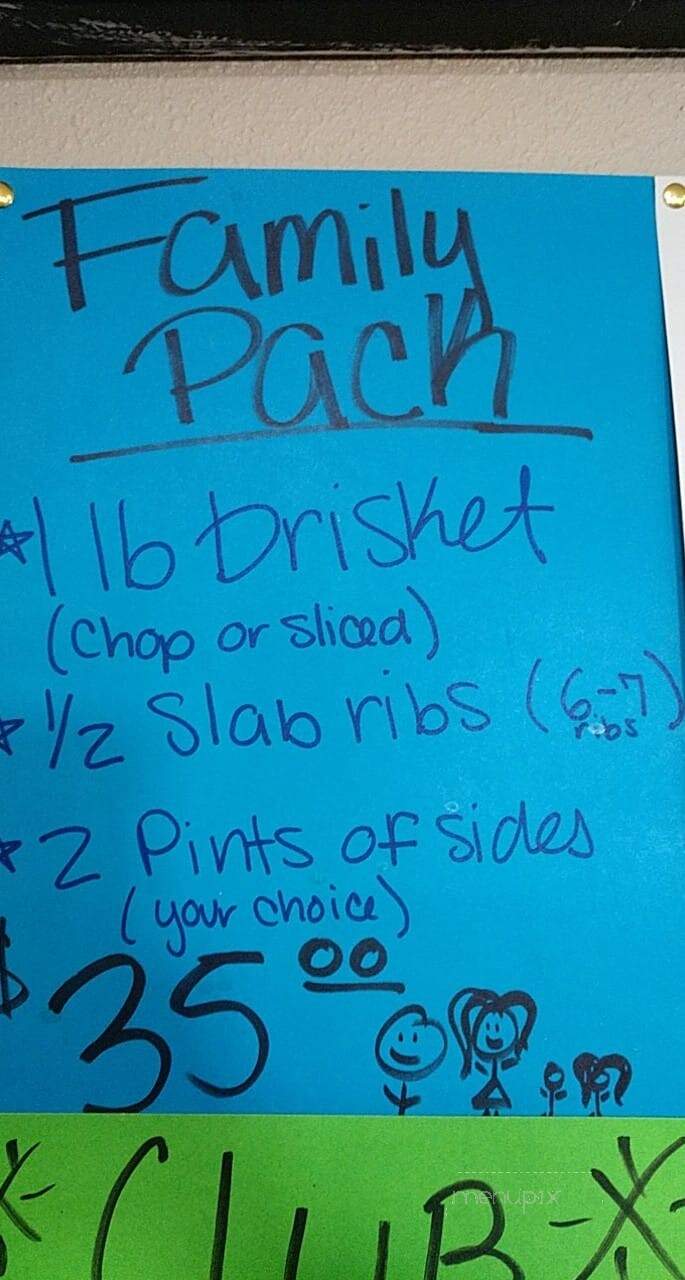 Family
Pack
☆ 1 lb brisket
(Chop or sliced)
☆ 1/2 Slab ribs (6-7 ribs)
☆ 2 Pints of sides
(your choice)
$35.00
Club
menupix